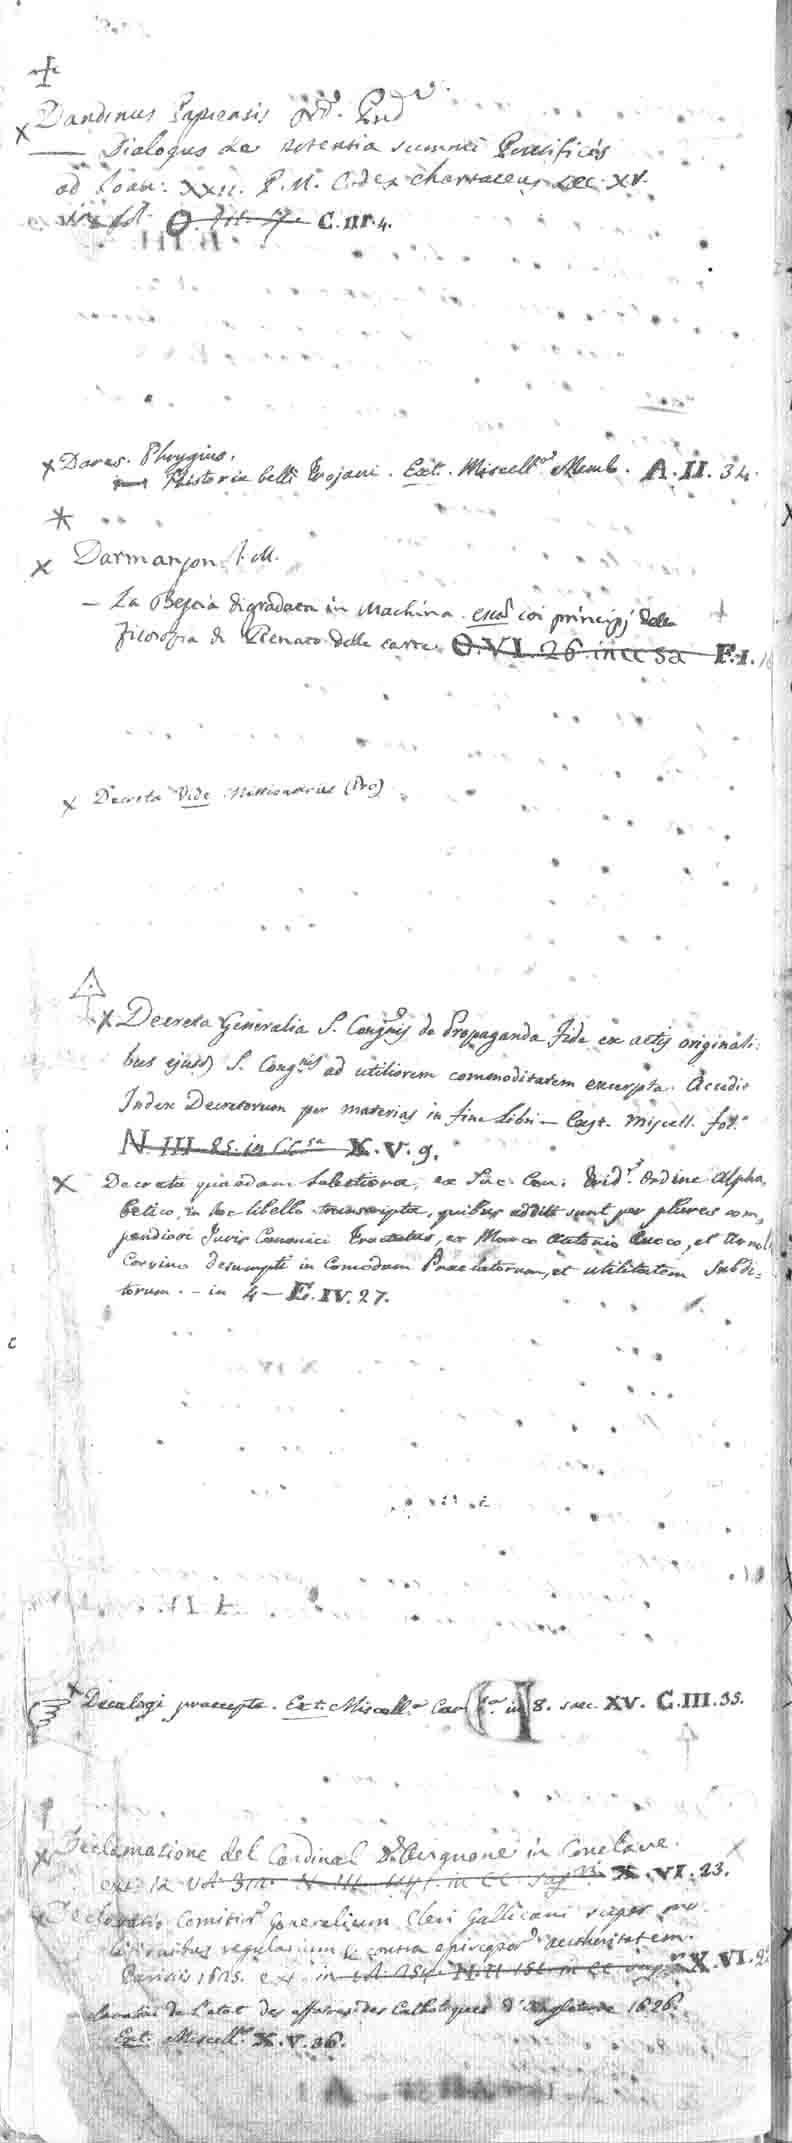 Dandinus Papiensis ord. Pred
— Dialogus de potentia summi Pontificis
ad Joan: XXII. P. M. Codex chartaceus saec. XV.
in fol. C.III.4.
X Dares. Phrygius.
— Historia belli Trojani. Ext. Miscell. Memb. A.II.34.
X Darmanson J. M.
— La Bestia digradata in Machina coi principj della
filosofia di Renato delle carte. O.VI.26. in cc sa F.I.
X Decreta Vide Missionariis (Pro)
X Decreta Generalia S. Congnis de Propaganda fide ex actis originali:
bus ejusd S. Congnis ad utiliorem commoditatem excerpta. Accedit
Index Decretorum per materias in fine Libri — Miscell. fol.
N.III.85. in CCsa X.V.9.
X Decreta quaedam selectiora, ex Sac. Con. Trid. ordine Alpha,
betico, in hoc libello transcripta, quibus additi sunt per plures com,
pendiosi Juris Canonici Tractatus, ex Marco Antonio Cucco, et Arnol
Corvino desumpti in comodum Praelatorum, et utilitatem Subdi=
torum. - in 4 — E.IV.27.
X Decalogi praecepta. Ext. Miscell. in 8. saec. XV. C.III.35.
X Declamazione del Cardinal d'Avignone in Conclave.
X.VI.23.
X Declaratio Comitior Generalium Cleri Gallicani super
regularium contra episcopor auctoritatem.
Parisiis 1625. X.VI.
de l'etat des affaires des Catholiques d'Angleterre 1626.
Ext. Miscell. X.V.36.